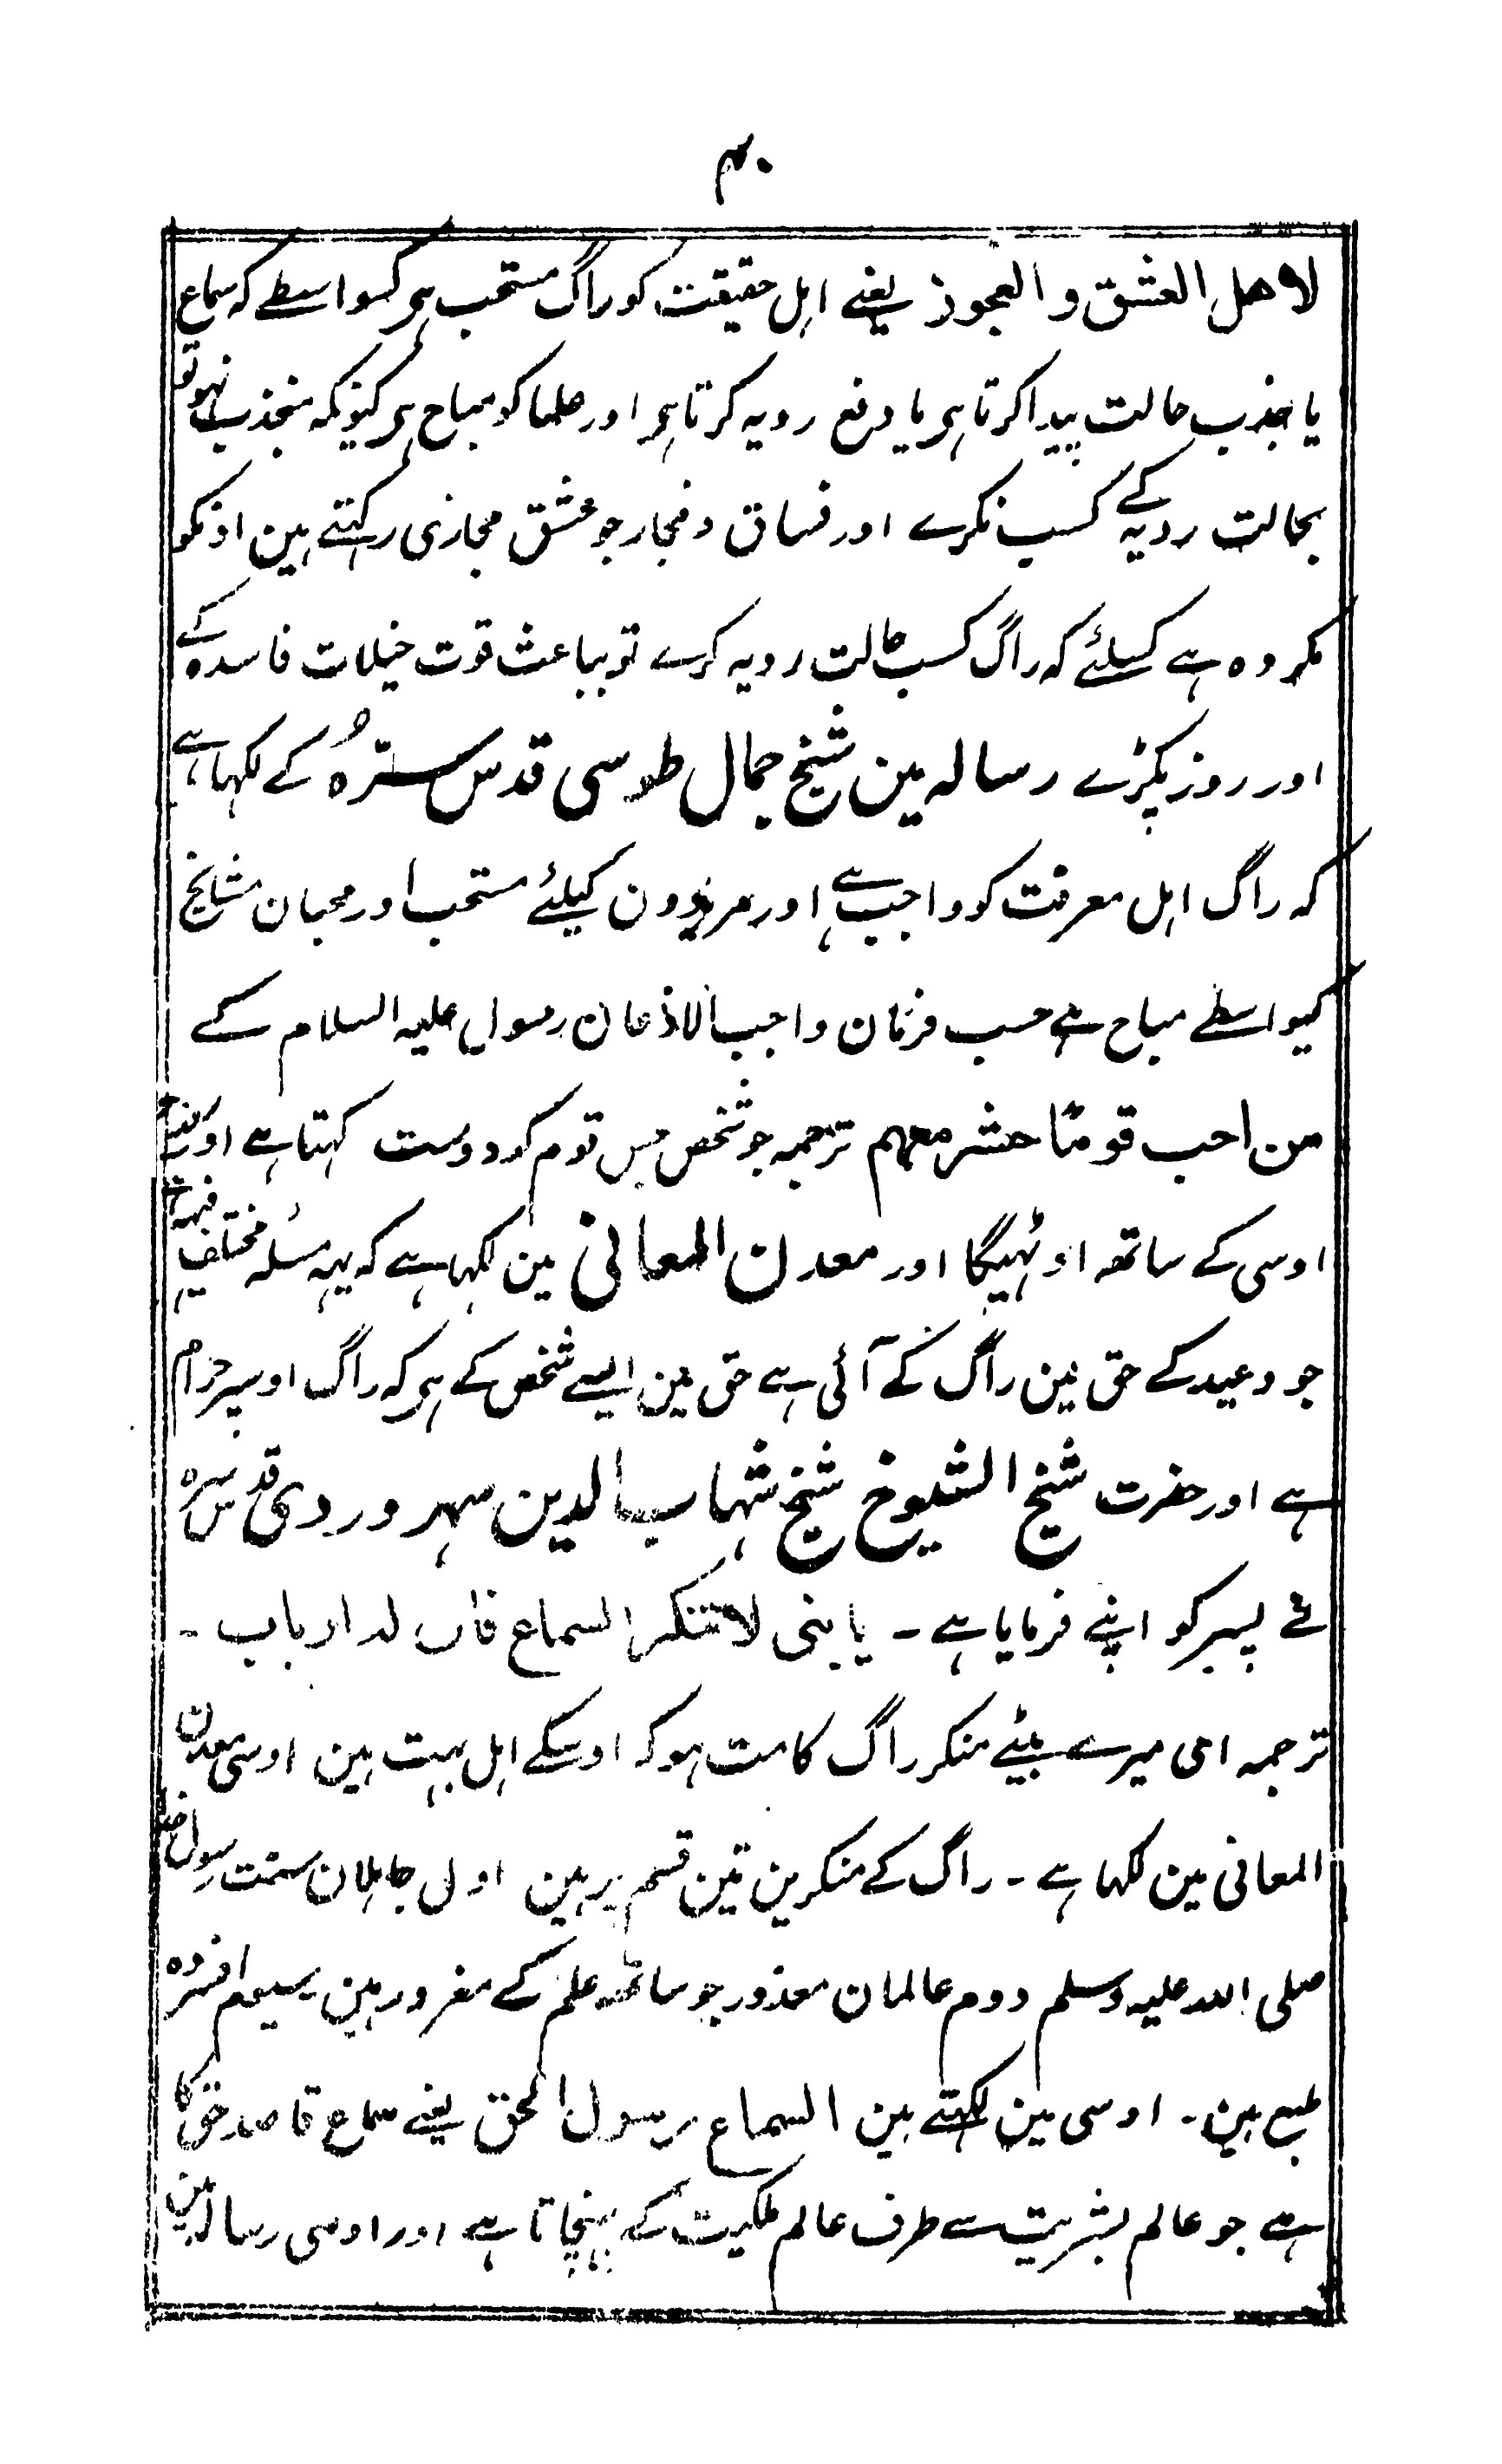 ۴۰
لاهل العشق و العجوز یعنے اہل حقیقت کو راگ مستحب ہی کسواسطے کہ سماع
یا جذب حالت پیدا کرتا ہی یا دفع رویہ کرتا ہی اور علما کو مباح ہی کیونکہ منجذب نہو تو
بحالت ردیہ کے کسب نکرے اور فساق و فجار جو عشق مجازی رکہتے ہین اونکو
مکروہ ہے کسلئے کہ راگ کسب حالت ردیہ کرے تو بباعث قوت خیلات فاسدہ کے
اور روز پکڑے رسالہ مین شیخ جمال طوسی قدس سرّہُ کے لکہا ہے
کہ راگ اہل معرفت کو واجب ہے اور مریدون کیلئے مستحب اور محبان مشایخ
کیواسطے مباح ہے حسب فرمان واجب الاذعان رسول علیہ السلام کے
من احب قومًا حشر معهم ترجمہ جو شخص جس قوم کو دوست کہتا ہے
اوسی کے ساتھہ اوٹہیگا اور معدن المعانی مین لکہا ہے کہ یہہ مسئلہ مختلف فیہہ ہے
جو وعید کے حق مین راگ کے آئی ہے حق مین ایسے شخص کے ہی کہ راگ اوسپر حرام
ہے اور حضرت شیخ الشیوخ شیخ شہاب الدین سہروردی قدس سرہ
نے پسر کو اپنے فرمایا ہے ۔ یا بنی لا تنکر السماع فان له ارباب ۔
ترجمہ ای میرے بیٹے منکر راگ کا مت ہو کہ اوسکے اہل بہت ہین اوسی معدن
المعانی مین لکہا ہے ۔ راگ کے منکرین تین قسم پر ہین اول جاہلان سنت رسول
صلی اللہ علیہ وسلم دوم عالمان معذور جو ساتھہ علم کے مغرور ہین سیوم افسردہ
طبع ہین ۔ اوسی مین لکہتے ہین السماع رسول الحق یعنے سماع قاصد حق کا
ہے جو عالم بشریت سے طرف عالم ملکیت کے پہنچاتا ہے اور اوسی رسالہ مین